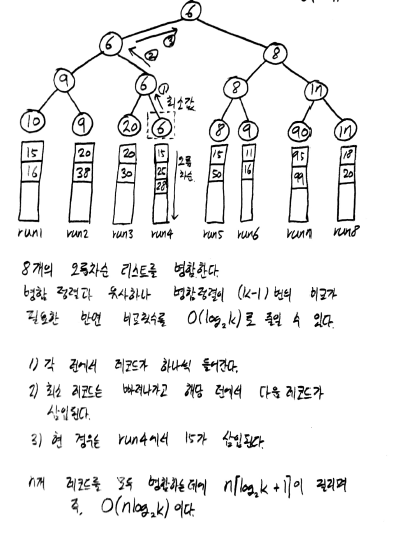 6
6
8
9
6
8
17
① 최소값
②
③
10 9 20 6 8 9 90 17
15 20 20 15 15 11 95 18
16 38 30 25 50 16 99 20
28
오름차순
run1 run2 run3 run4 run5 run6 run7 run8
8개의 오름차순 리스트를 병합한다.
병합 정렬과 유사하나 병합정렬이 (k-1) 번의 비교가
필요한 반면 비교횟수를 O(log₂k)로 줄일 수 있다.
1) 각 런에서 레코드가 하나씩 들어간다.
2) 최소 레코드는 빠져나가고 해당 런에서 다음 레코드가
삽입된다.
3) 현 경우는 run4에서 15가 삽입된다.
n개 레코드를 모두 병합하는데에 n⌈log₂k+1⌉이 걸리며
즉, O(nlog₂k)이다.